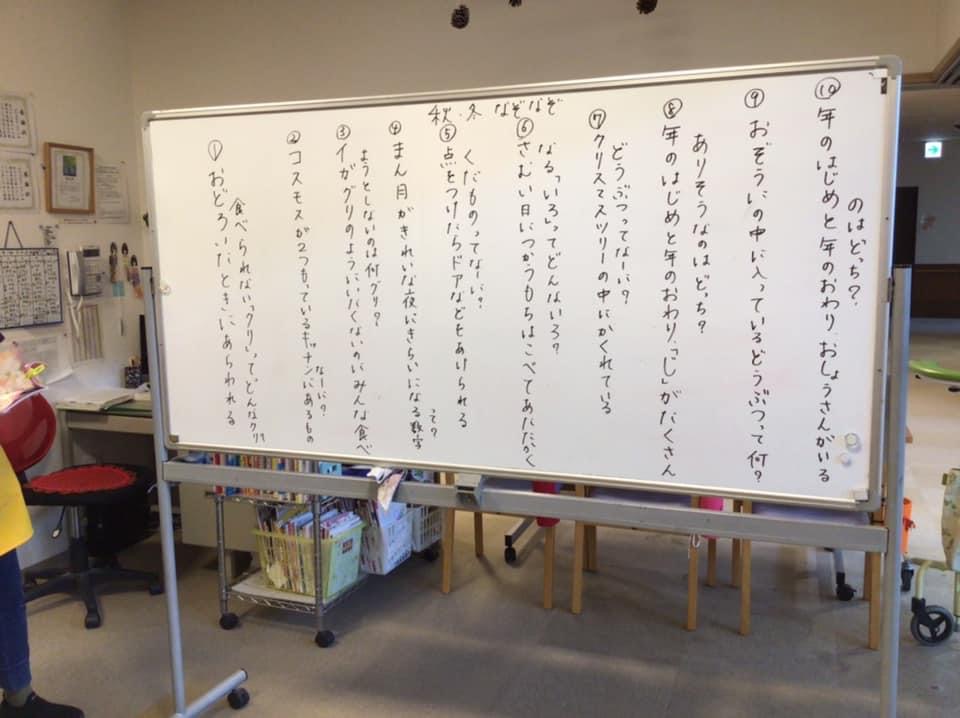 秋.冬 なぞなぞ
① おどろいたときにあらわれる
食べられない"クリ"ってどんなクリ?
② コスモスが2つもっているキッチンにあるもの
なーに?
③ イガグリのようにいたくないのにみんな食べ
ようとしないのは何グリ?
④ まん月がきれいな夜にきらいになる数字
って?
⑤ 点をつけたらドアなどをあけられる
くだものってなーに?
⑥ さむい日につかうもちはこべてあたたかく
なる「いろ」ってどんないろ?
⑦ クリスマスツリーの中にかくれている
どうぶつってなーに?
⑧ 年のはじめと年のおわり、「し」がたくさん
ありそうなのはどっち?
⑨ おぞうにの中に入っているどうぶつって何?
⑩ 年のはじめと年のおわり、おしょうさんがいる
のはどっち?